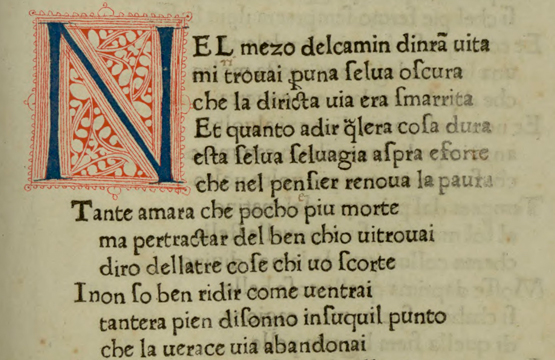 NEL mezo delcamin dinrã uita
mi trouai ꝑuna ſelua oſcura
che la diricta uia era ſmarrita
Et quanto adir q̃lera coſa dura
eſta ſelua ſeluagia aſpra eforte
che nel penſier renoua la paura
Tante amara che pocho piu morte
ma pertractar del ben chio uitrouai
diro dellatre coſe chi uo ſcorte
Inon ſo ben ridir come uentrai
tantera pien diſonno inſuquil punto
che la uerace uia abandonai